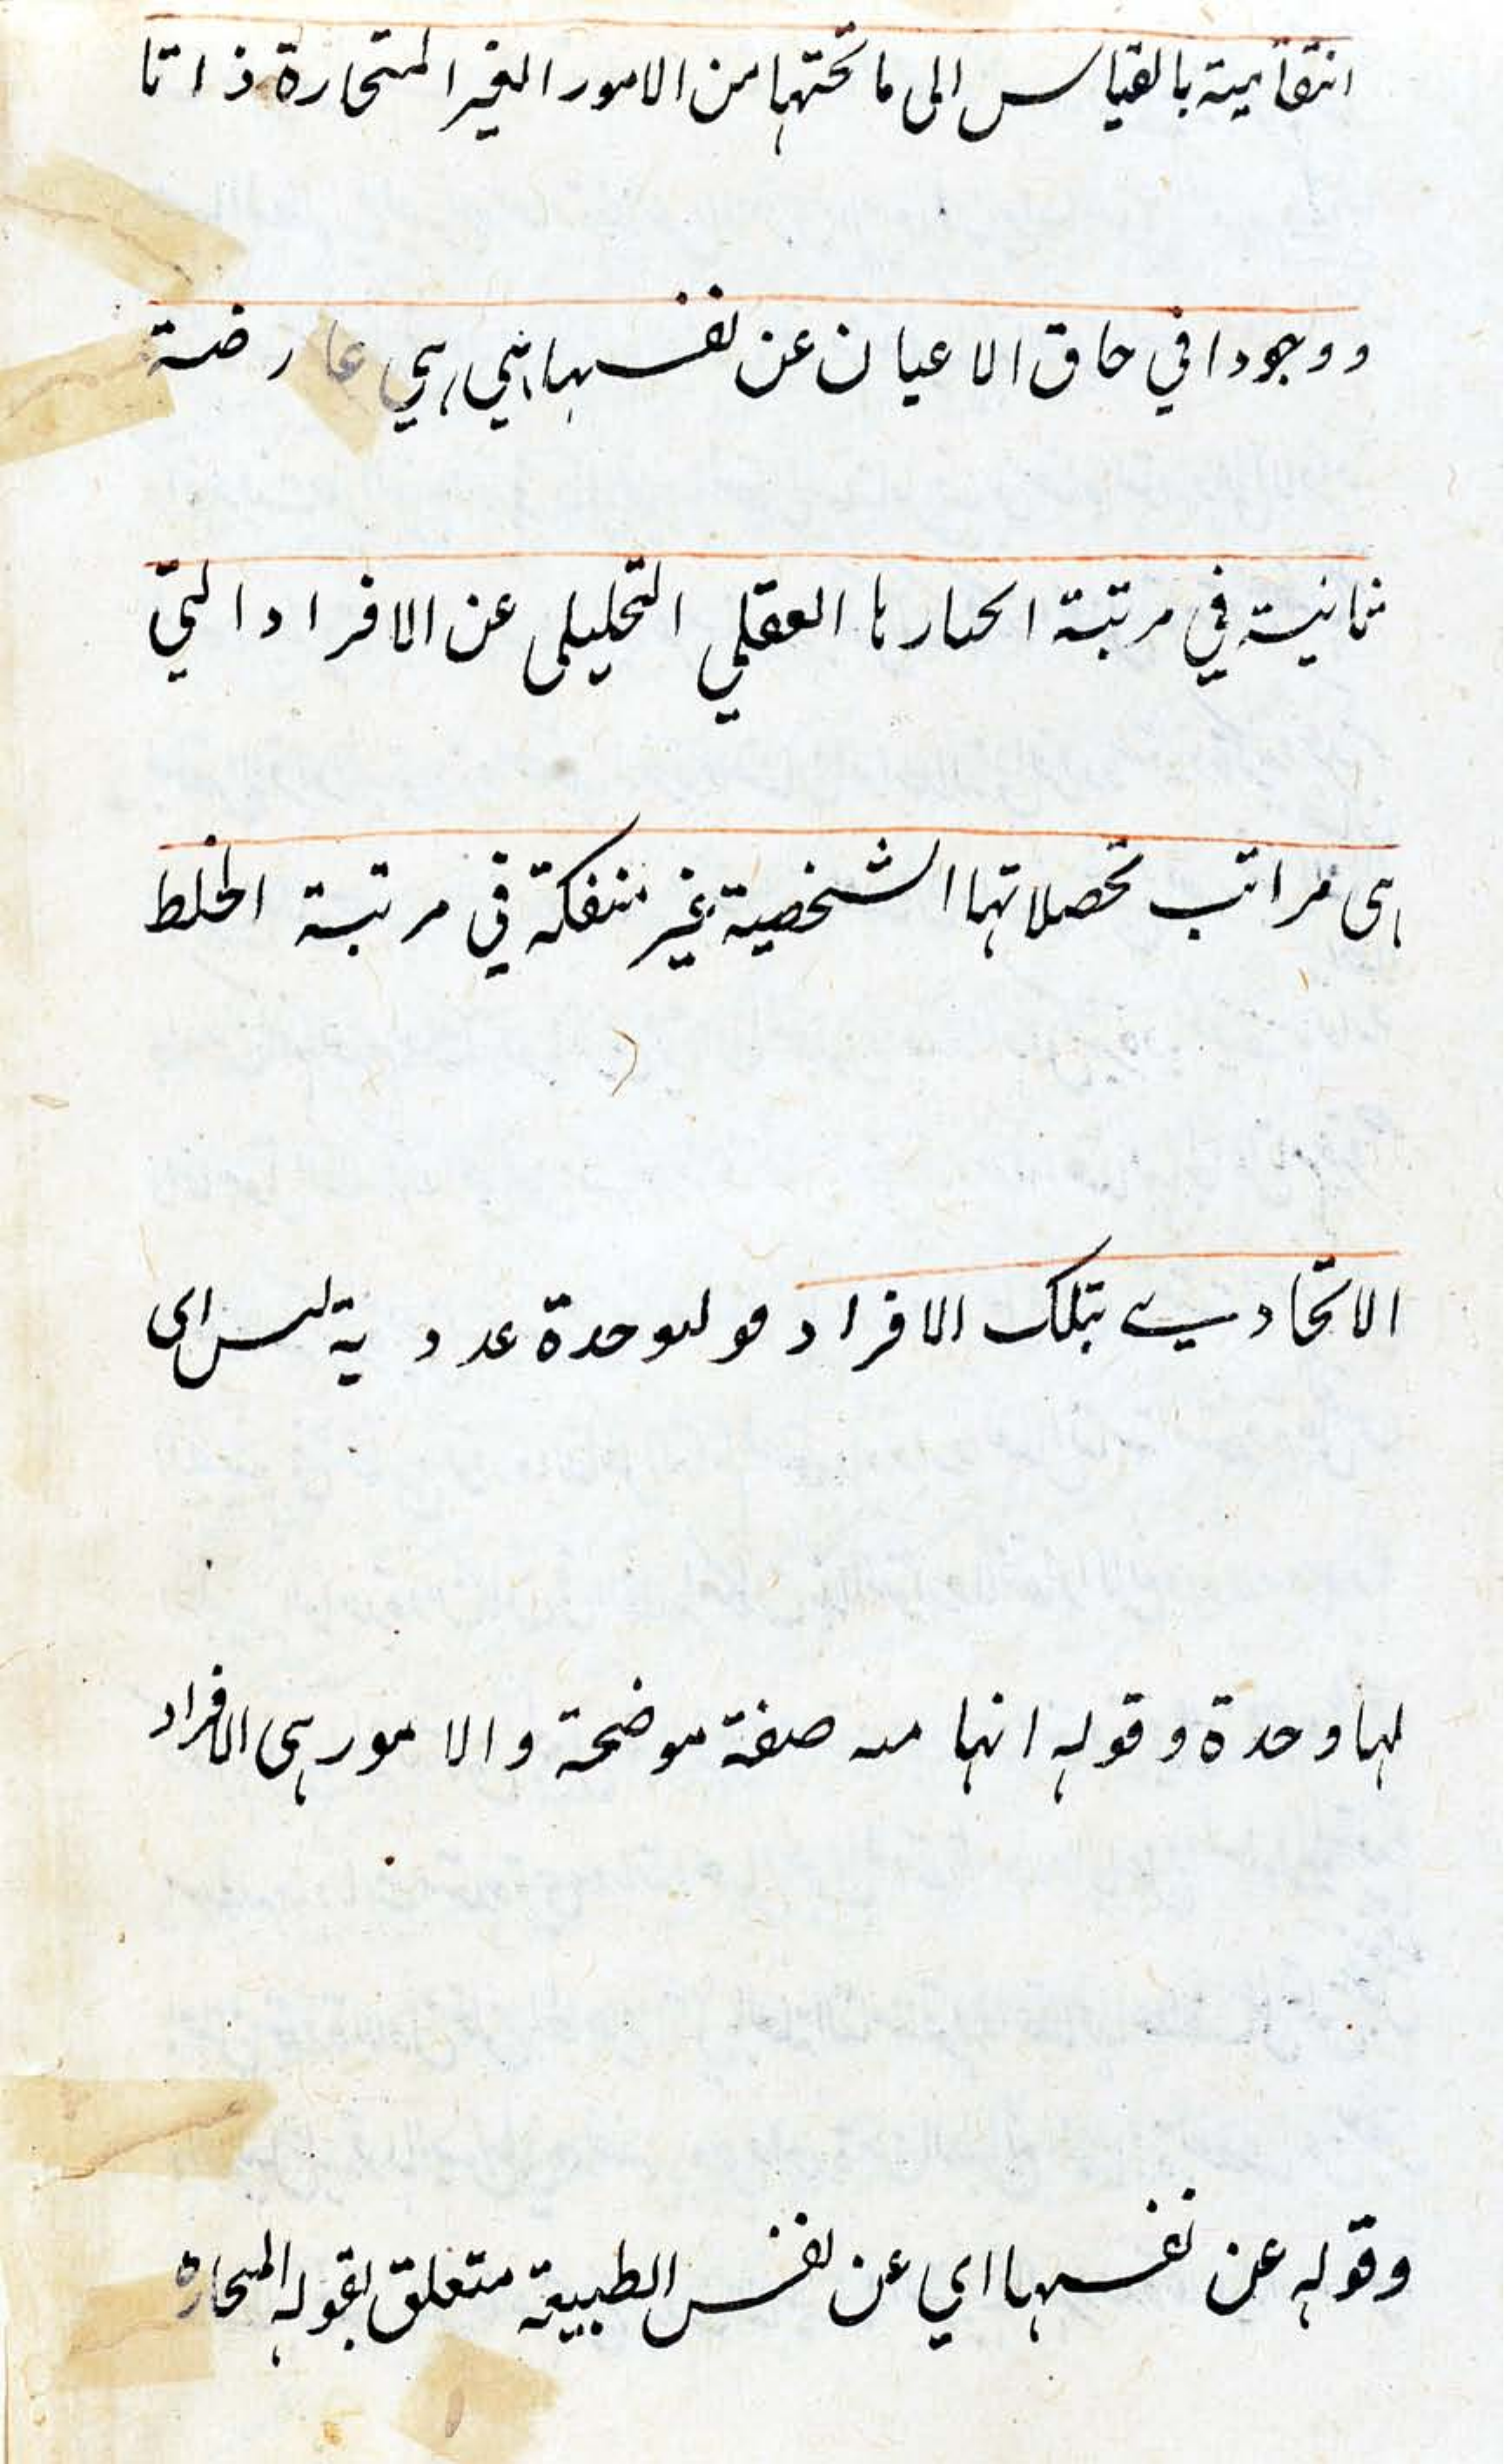 انتقاتية بالقياس الى ما تحتها من الامور الغير المتحازة ذاتا
ووجودا في حاق الاعيان عن نفسها التي هي عارضة
ثانية في مرتبة العقلي التحليلي عن الافراد التي
هى مراتب تحصلاتها الشخصية غير منفكة في مرتبة الخلط
الاتحادي بتلك الافراد عددية اى
لها وحدة وقوله انها صفة موضحة والامور هى الافراد
وقوله عن نفسها اي عن نفس الطبيعة متعلق بقوله المتحازة